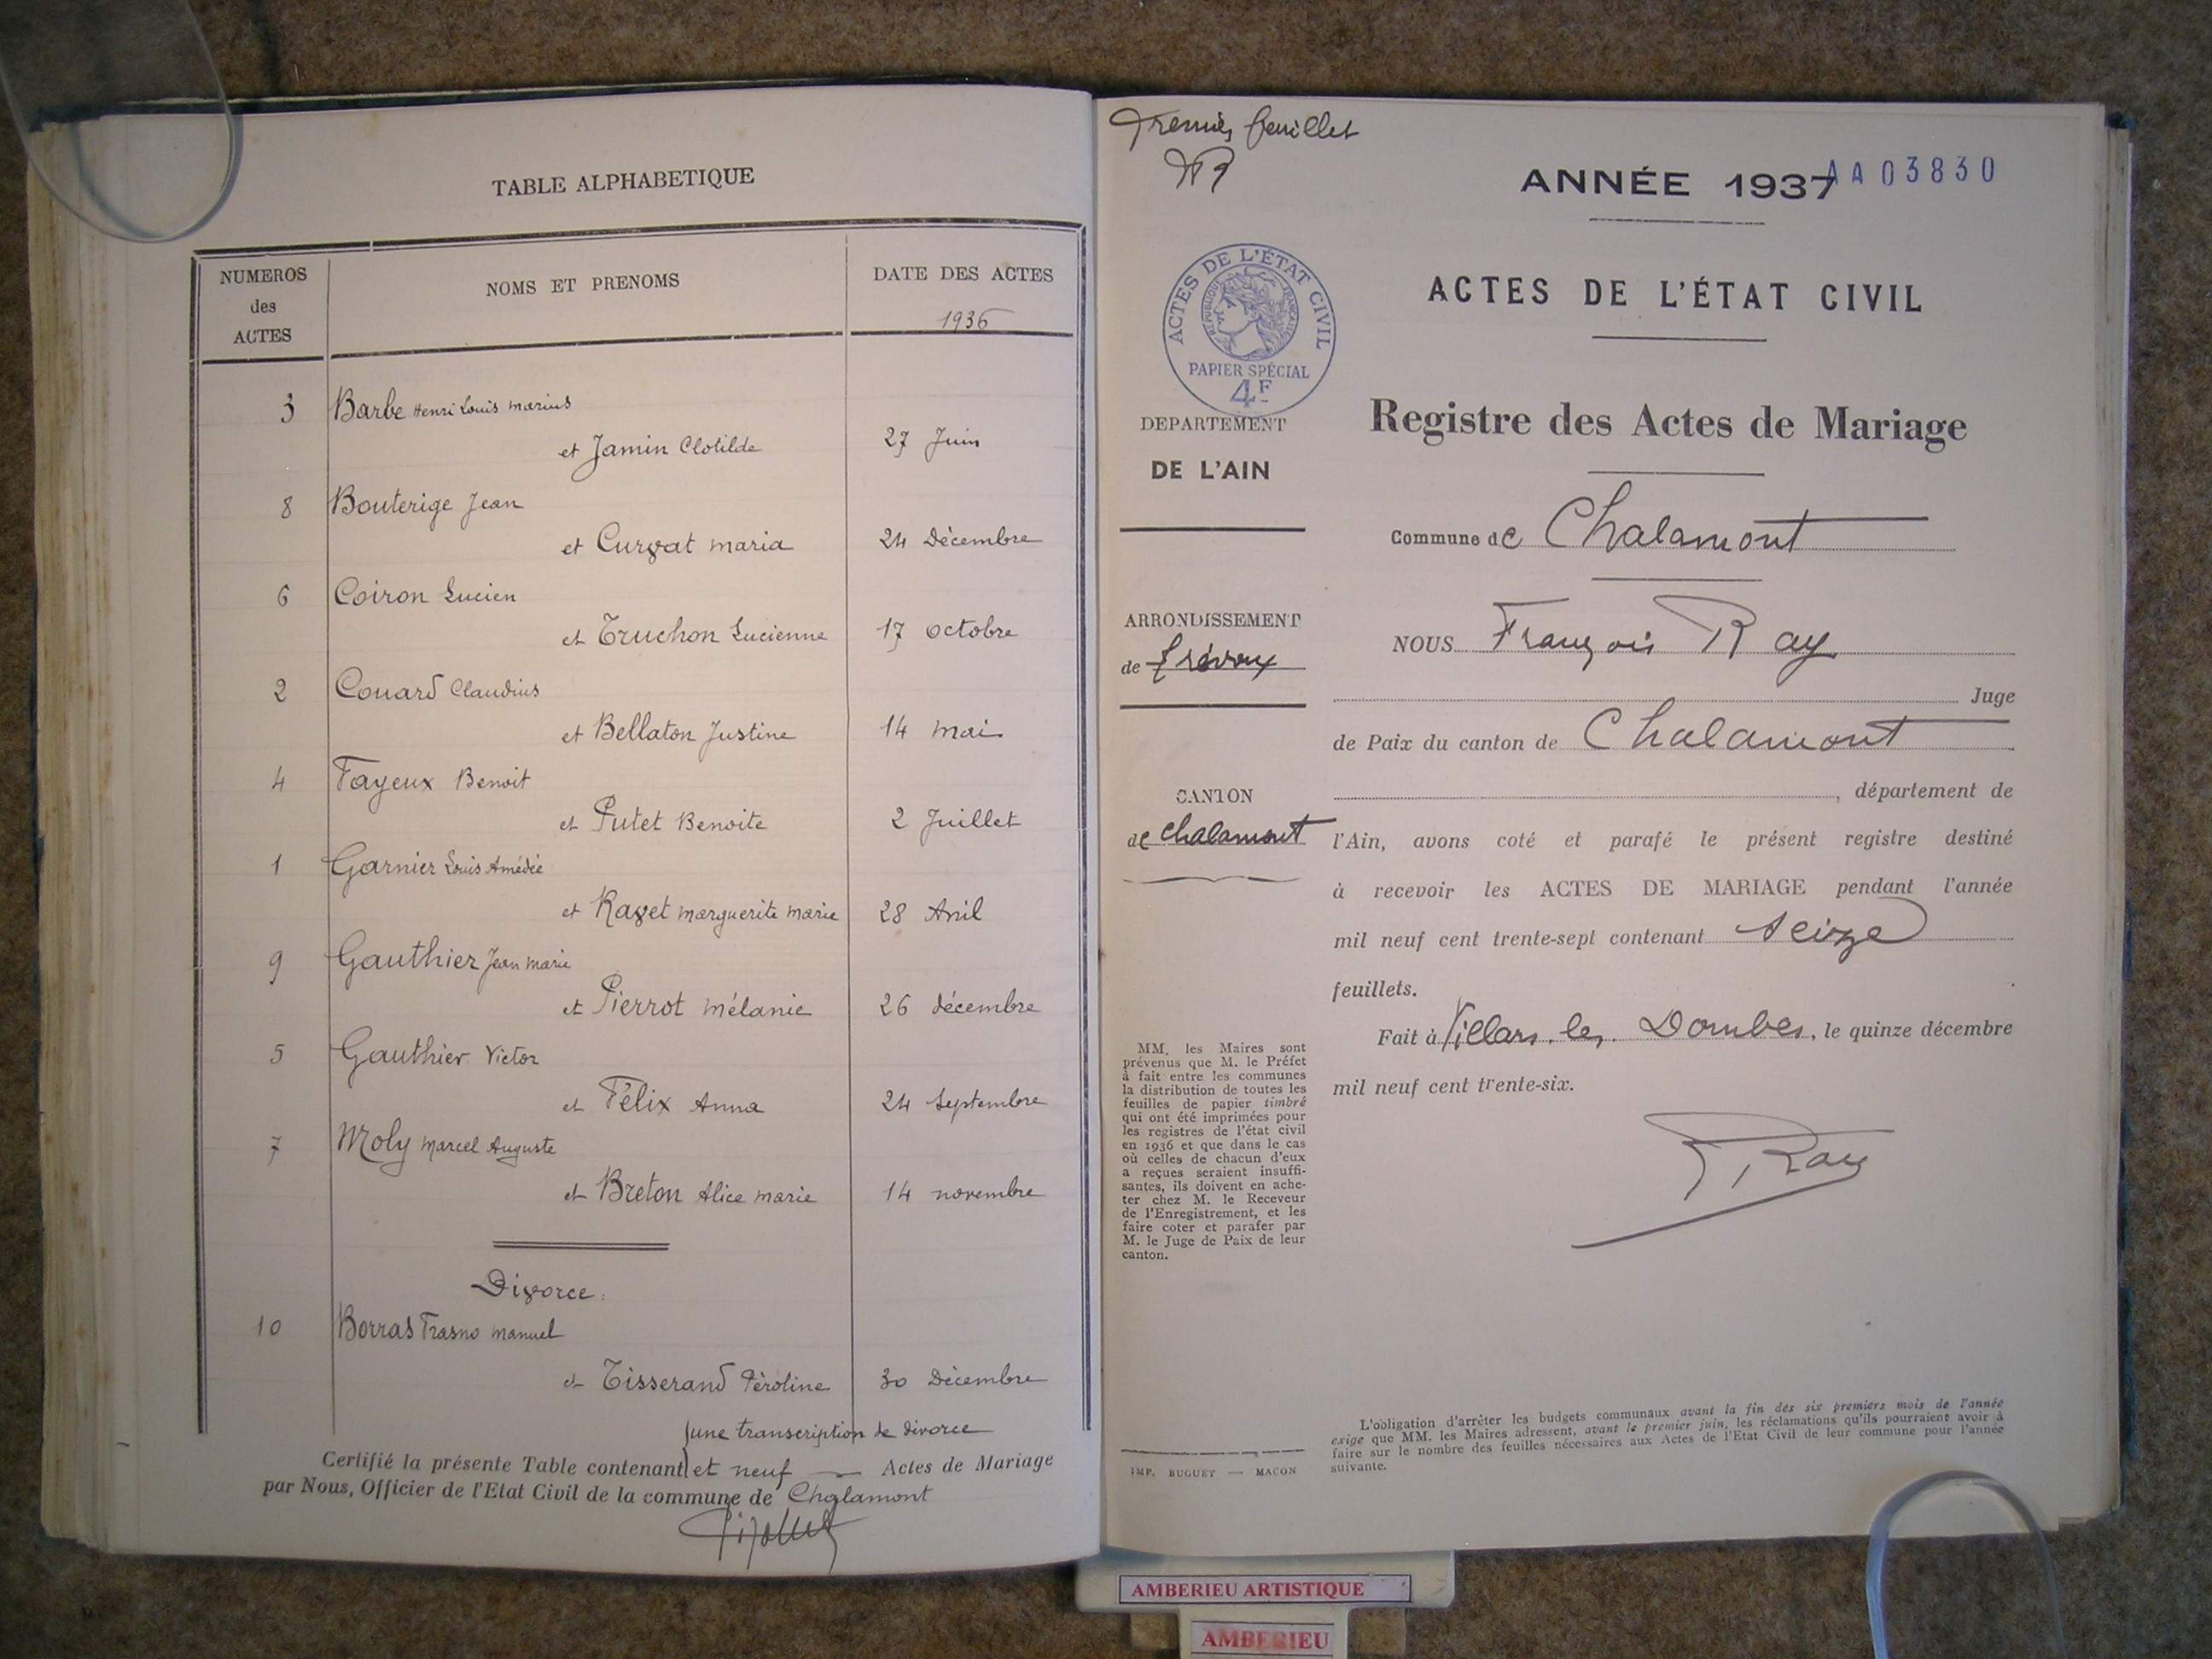 TABLE ALPHABETIQUE
NUMEROS
des
ACTES
NOMS ET PRENOMS
DATE DES ACTES
1936
3 Barbe Henri Louis Marius
et Jamin Clotilde 27 Juin
8 Bouterige Jean
et Curvat Maria 24 Décembre
6 Coiron Lucien
et Truchon Lucienne 17 octobre
2 Couard Claudius
et Bellaton Justine 14 mai
4 Fayeux Benoit
et Putet Benoite 2 Juillet
1 Garnier Louis Amédée
et Ravet Marguerite Marie 28 Avril
9 Gauthier Jean Marie
et Pierrot Mélanie 26 décembre
5 Gauthier Victor
et Félix Anna 24 Septembre
7 Moly Marcel Auguste
et Breton Alice Marie 14 novembre
Divorce:
10 Borras Trasno Manuel
et Tisserand Péroline 30 Décembre
une transcription de divorce
Certifié la présente Table contenant et neuf — Actes de Mariage
par Nous, Officier de l'Etat Civil de la commune de Chalamont
Premier feuillet
ANNÉE 1937
AA03830
ACTES DE L'ÉTAT CIVIL
RÉPUBLIQUE FRANÇAISE
PAPIER SPÉCIAL
4F
DEPARTEMENT
DE L'AIN
ARRONDISSEMENT
de Trévoux
CANTON
de Chalamont
MM. les Maires sont
prévenus que M. le Préfet
à fait entre les communes
la distribution de toutes les
feuilles de papier timbré
qui ont été imprimées pour
les registres de l'état civil
en 1936 et que dans le cas
où celles de chacun d'eux
a reçues seraient insuffi-
santes, ils doivent en ache-
ter chez M. le Receveur
de l'Enregistrement, et les
faire coter et parafer par
M. le Juge de Paix de leur
canton.
IMP. BUGUET — MACON
ACTES DE L'ÉTAT CIVIL
Registre des Actes de Mariage
Commune de Chalamont
NOUS François Ray
Juge
de Paix du canton de Chalamont
, département de
l'Ain, avons coté et parafé le présent registre destiné
à recevoir les ACTES DE MARIAGE pendant l'année
mil neuf cent trente-sept contenant seize
feuillets.
Fait à Villars les Dombes, le quinze décembre
mil neuf cent trente-six.
Ray
L'obligation d'arrêter les budgets communaux avant la fin des six premiers mois de l'année
exige que MM. les Maires adressent, avant le premier juin, les réclamations qu'ils pourraient avoir à
faire sur le nombre des feuilles nécessaires aux Actes de l'Etat Civil de leur commune pour l'année
suivante.
AMBERIEU ARTISTIQUE
AMBERIEU